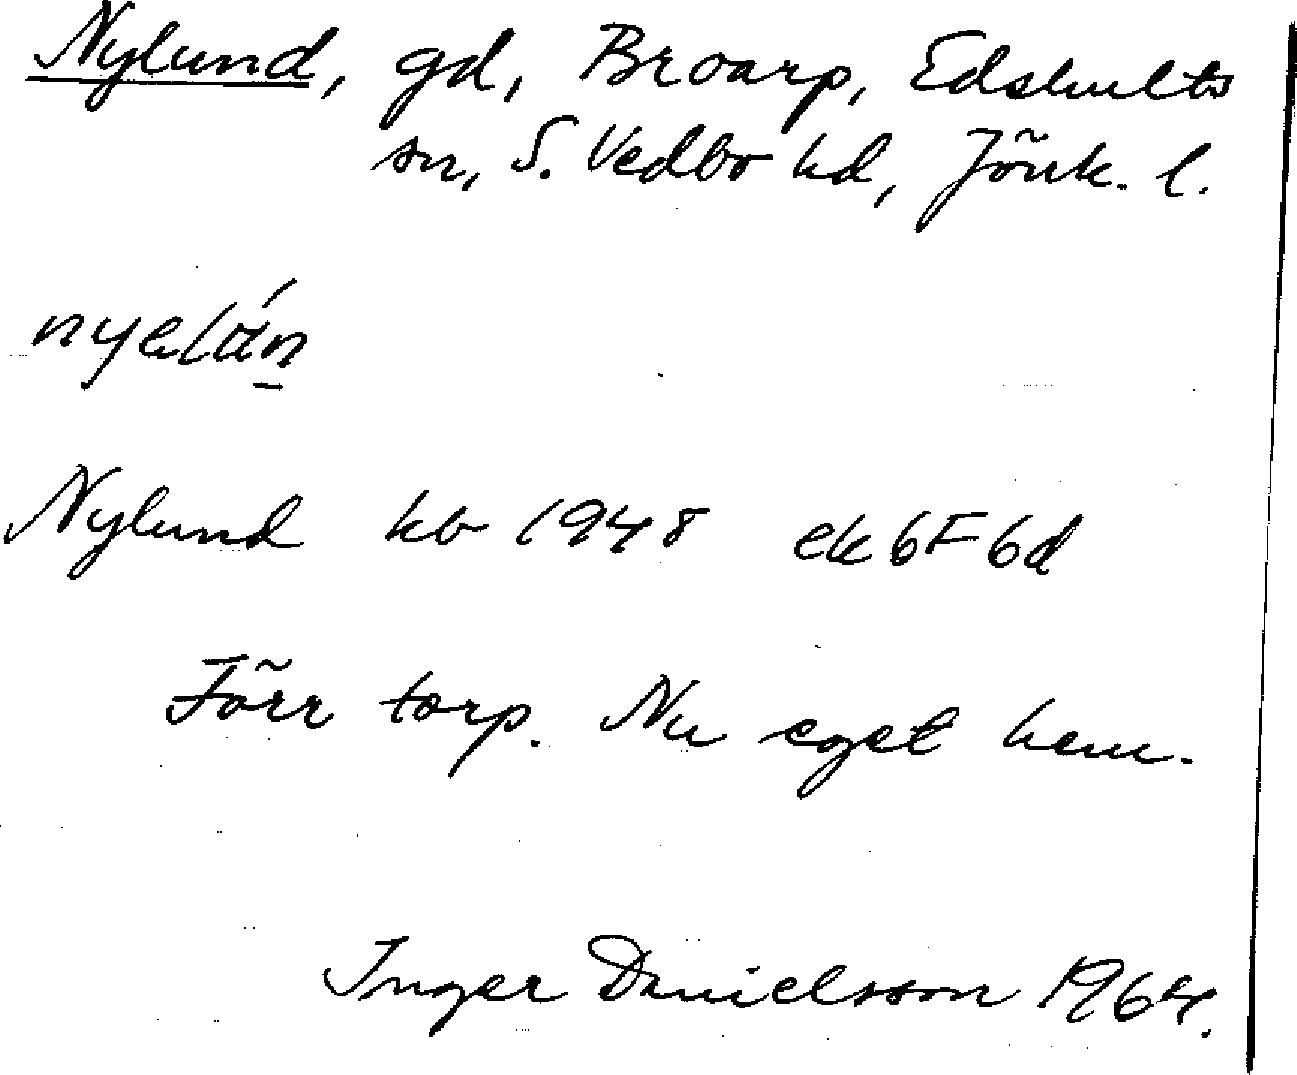 Nylund, gd, Broarp, Edshults
sn, S. Vedbo hd, Jönk. l.
Nylund kb 1948 ek 6F6d
Förr torp. Nu eget hem.
Inger Danielsson 1964.